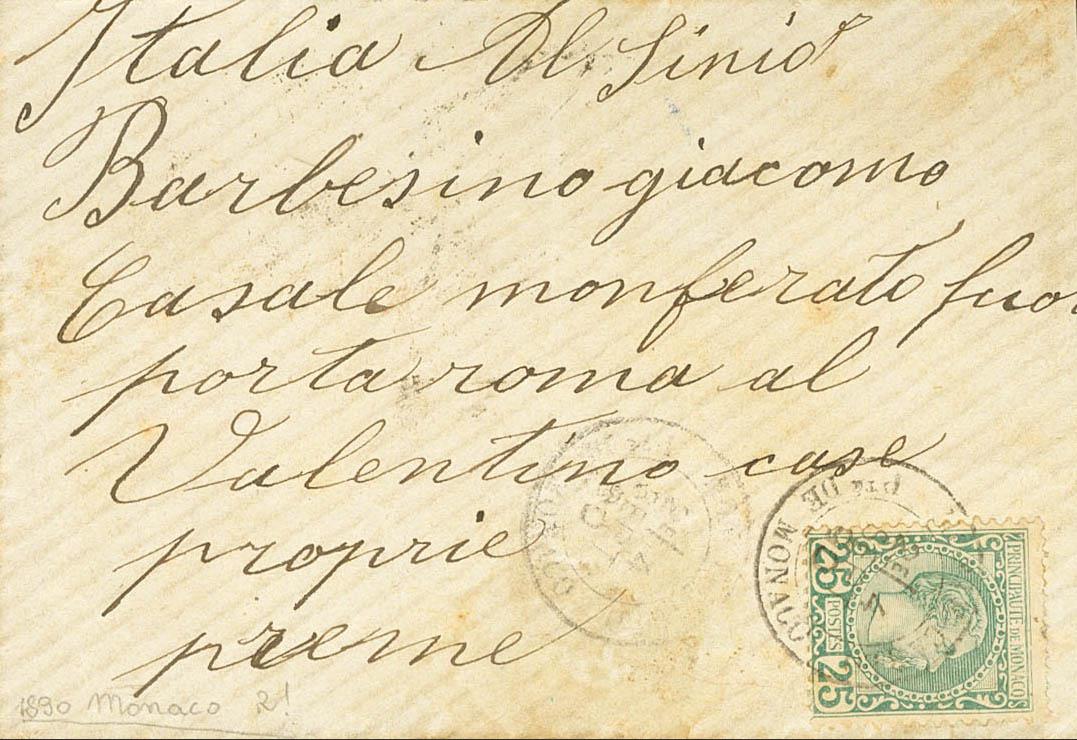 Italia Al Sinior
Barbesino giacomo
Casale monferato fuor
porta roma al
Valentino case
proprie
preme
Pté DE MONACO
PRINCIPAUTÉ DE MONACO
25 POSTES 25
1890 Monaco 2!